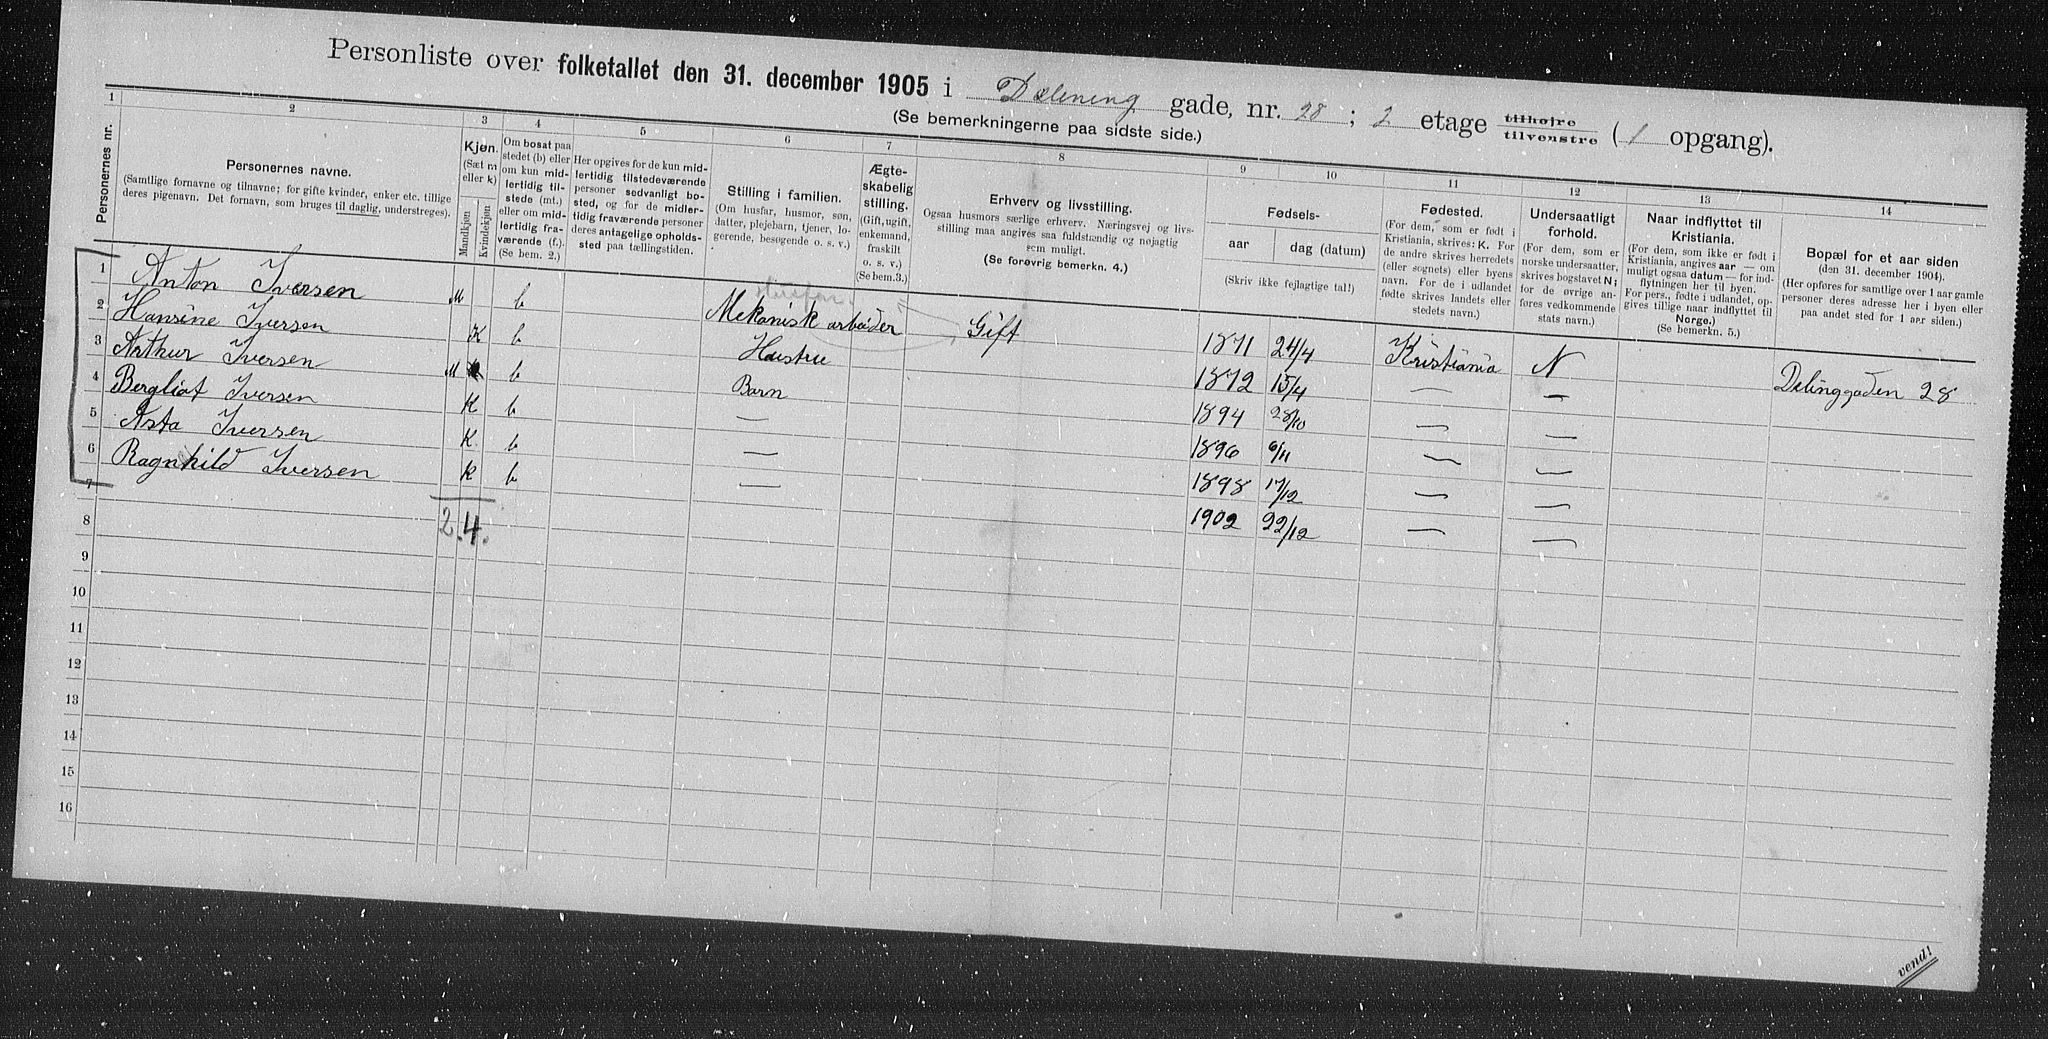 Personliste over folketallet den 31. december 1905 i Dælening gade, nr. 28 ; 2 etage tilhøjre tilvenstre ( 1 opgang).
(Se bemerkningerne paa sidste side.)
1 2 3 4 5 6 7 8 9 10 11 12 13 14
Personernes nr.
Personernes navne.
(Samtlige fornavne og tilnavne; for gifte kvinder, enker etc. tillige
deres pigenavn. Det fornavn, som bruges til daglig, understreges).
Kjøn.
(Sæt m
eller k)
Mandkjøn
Kvindekjøn
Om bosat paa
stedet (b) eller
om kun mid-
lertidig til-
stede (mt.)
eller om mid-
lertidig fra-
værende (f.).
(Se bem. 2.)
Her opgives for de kun mid-
lertidig tilstedeværende
personer sedvanligt bo-
sted, og for de midler-
tidig fraværende personer
deres antagelige opholds-
sted paa tællingstiden.
Stilling i familien.
(Om husfar, husmor, søn,
datter, plejebarn, tjener, lo-
gerende, besøgende o. s. v.)
Ægte-
skabelig
stilling.
(Gift, ugift,
enkemand,
fraskilt
o. s. v.)
(Se bem. 3.)
Erhverv og livsstilling.
Ogsaa husmors særlige erhverv. Næringsvej og livs-
stilling maa angives saa fuldstændig og nøjagtig
som muligt.
(Se forøvrig bemerkn. 4.)
Fødsels-
aar dag (datum)
(Skriv ikke fejlagtige tal!)
Fødested.
(For dem, som er født i
Kristiania, skrives: K. For
de andre skrives herredets
(eller sognets) eller byens
navn. For de i udlandet
fødte skrives landets eller
stedets navn.)
Undersaatligt
forhold.
(For dem, som er
norske undersaatter,
skrives bogstavet N;
for de øvrige an-
føres vedkommende
stats navn.)
Naar indflyttet til
Kristiania.
(For dem, som ikke er født i
Kristiania, angives aar — om
muligt ogsaa datum — for ind-
flytningen her til byen.
For pers., fødte i udlandet, op-
gives tillige naar indflyttet til
Norge.)
(Se bemerkn. 5.)
Bopæl for et aar siden
(den 31. december 1904).
(Her opføres for samtlige over 1 aar gamle
personer deres adresse her i byen eller
paa andet sted for 1 aar siden.)
1 Anton Iversen M b Mekanisk arbeider Gift 1871 24/4 Kristiania N Delinggaden 28
2 Hansine Iversen K b Hustru 1872 15/4 — —
3 Arthur Iversen M b Barn 1894 28/10 — —
4 Bergliot Iversen K b — 1896 6/11 — —
5 Asta Iversen K b — 1898 17/12 — —
6 Ragnhild Iversen K b — 1902 22/12 — —
7
2. 4.
8
9
10
11
12
13
14
15
16
vend!